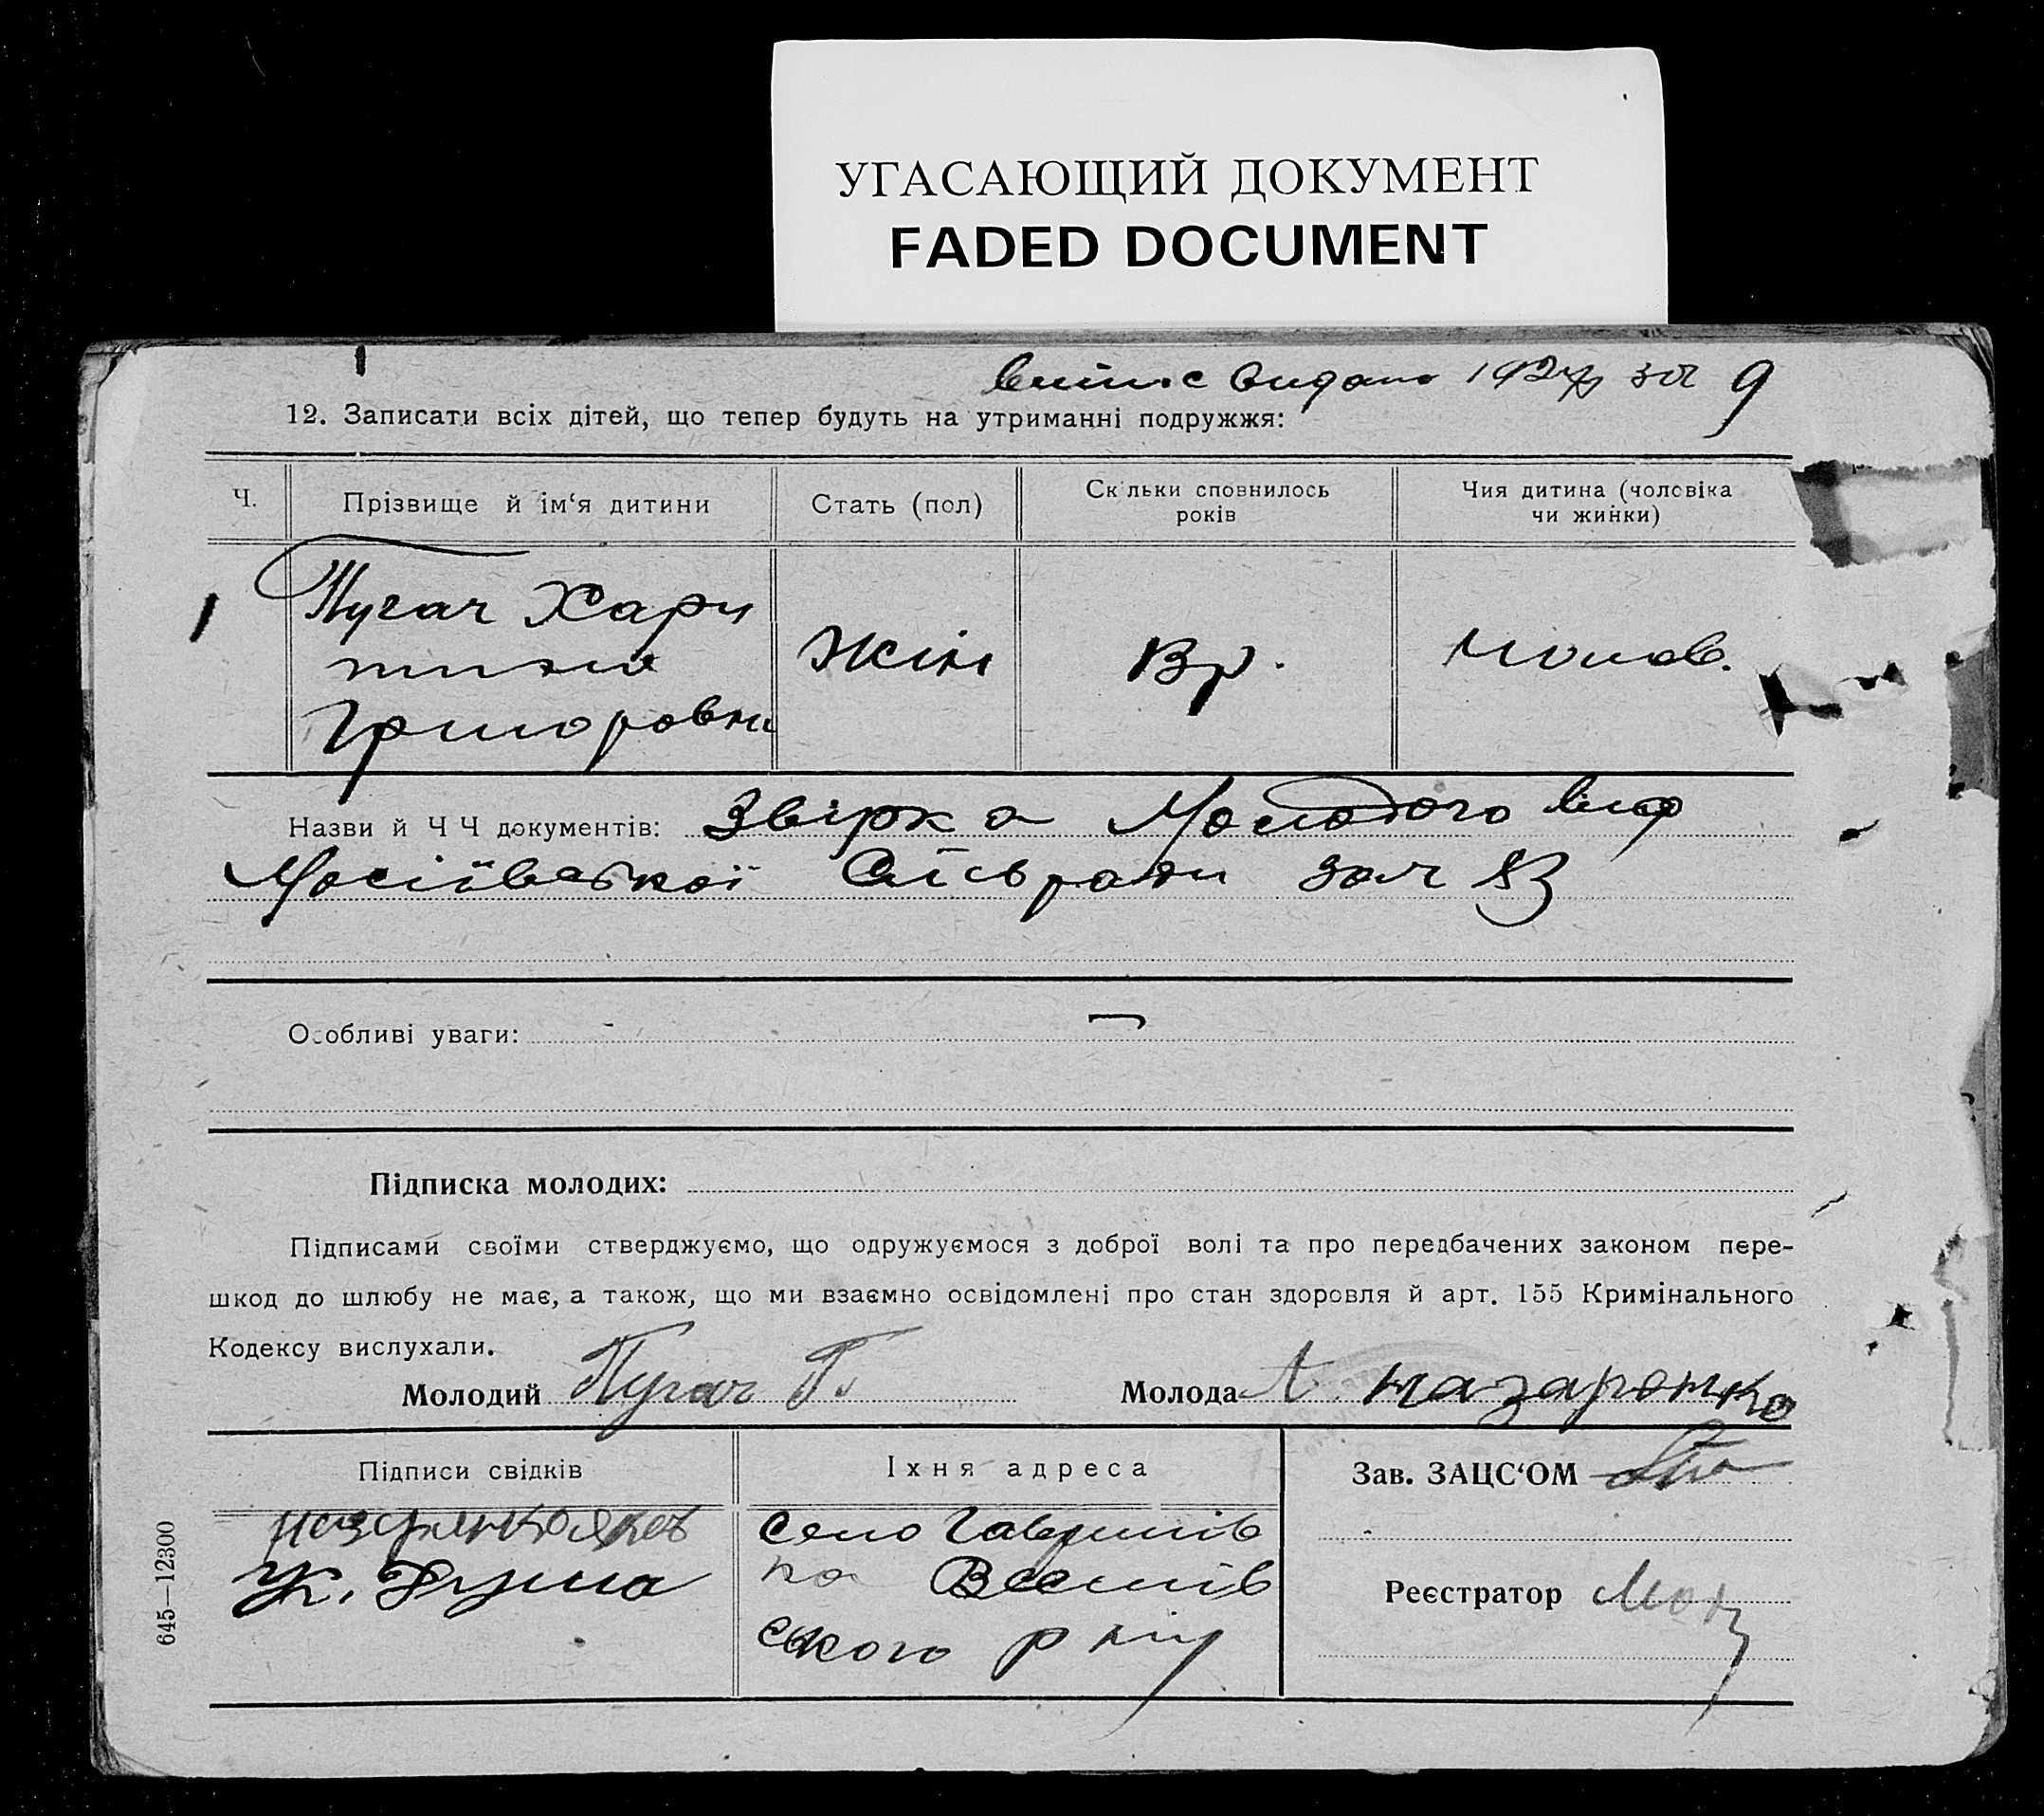 УГАСАЮЩИЙ ДОКУМЕНТ
FADED DOCUMENT
видано 192 за 9
12. Записати всіх дітей, що тепер будуть на утриманні подружжя:
Ч.
Прізвище й ім‘я дитини
Стать (пол)
Скільки сповнилось
років
Чия дитина (чоловіка
чи жинки)
1
Пугач Хари
тина
Григоровна
Жін
Чолов.
Назви й ЧЧ документів: Звірка Молодого
Мосіївської Сільради за ч
Особливі уваги:
Підписка молодих:
Підписами своїми стверджуємо, що одружуємося з доброї волі та про передбачених законом пере-
шкод до шлюбу не має, а також, що ми взаємно освідомлені про стан здоровля й арт. 155 Кримінального
Кодексу вислухали.
Молодий Пугач Г.
Молода назаренко
Підписи свідків
Їхня адреса
Зав. ЗАЦС‘ОМ
село Гаврилів
ка
ського р ну
Реєстратор
645—12300